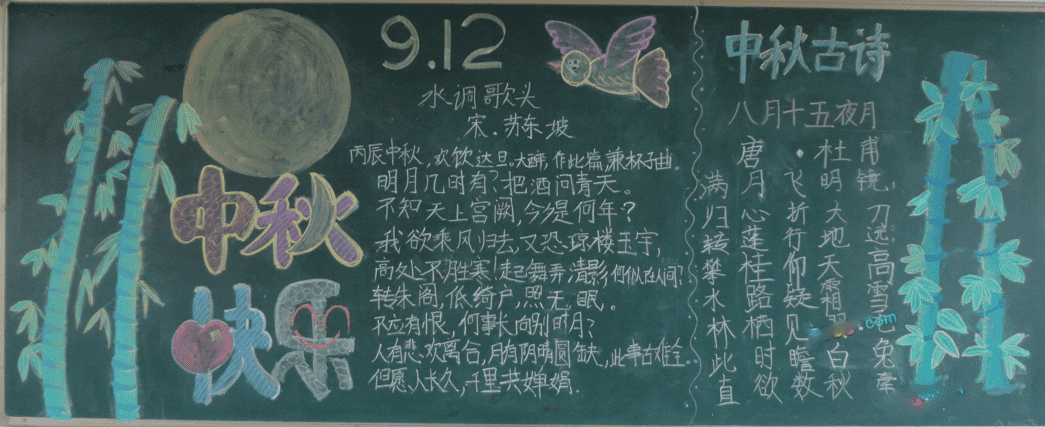 中秋
快乐
9.12
水调歌头
宋.苏东坡
丙辰中秋,欢饮达旦.大醉,作此篇,兼杯子曲.
明月几时有?把酒问青天。
不知天上宫阙,今夕是何年?
我欲乘风归去,又恐琼楼玉宇,
高处不胜寒!起舞弄清影何似在人间?
转朱阁,低绮户,照无眠。
不应有恨,何事长向别时月?
人有悲欢离合,月有阴晴圆缺,此事古难全
但愿人长久,千里共婵娟.
中秋古诗
八月十五夜月
唐·杜甫
满月飞明镜,
归心折大刀
转蓬行地远
攀桂仰天高
水路疑霜雪
林栖见羽毛
此时瞻白兔
直欲数秋毫
.com